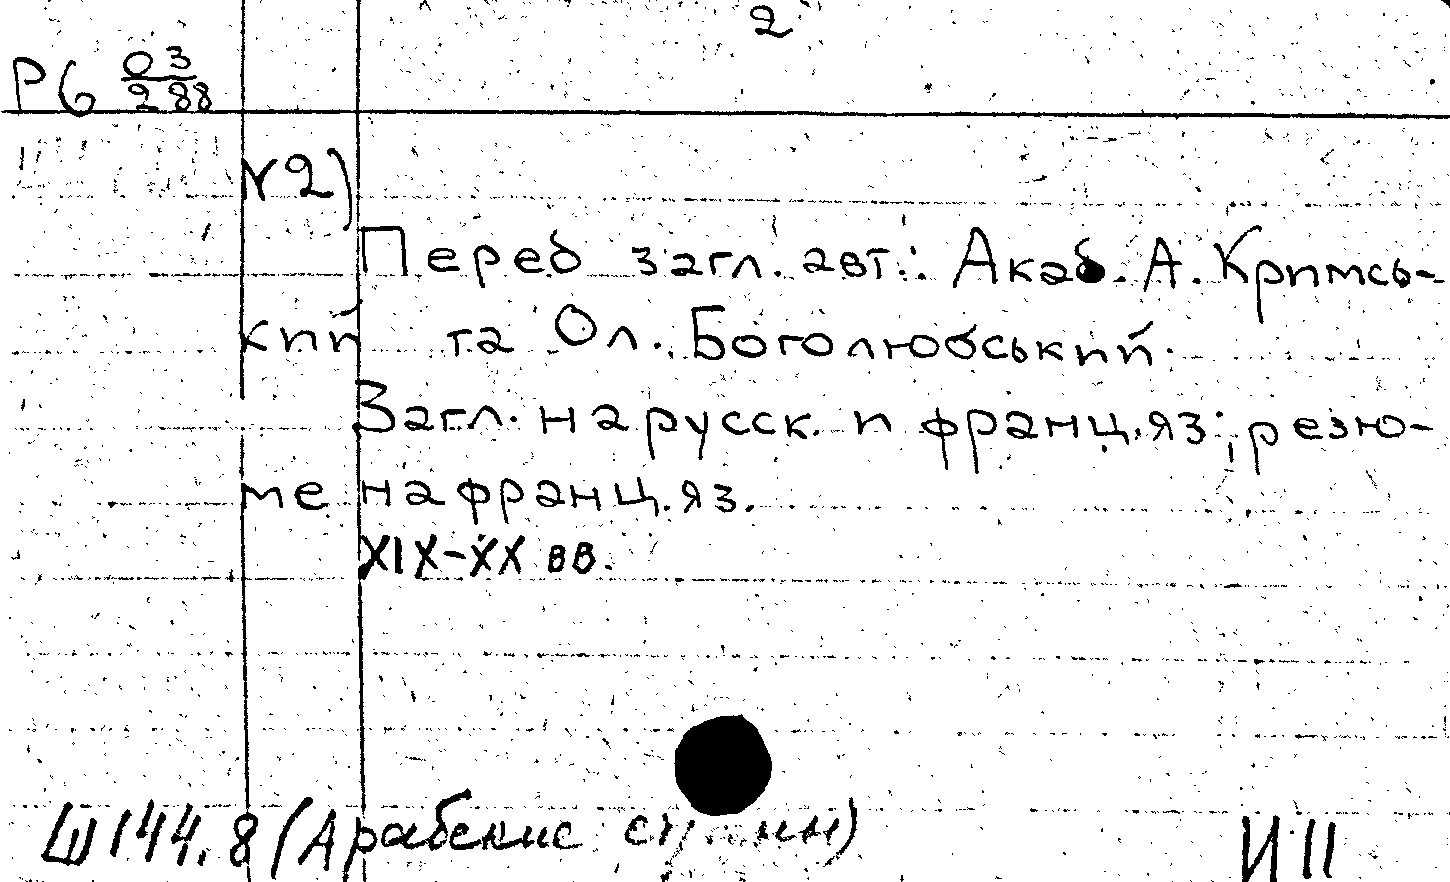 2
Р6 03/288
V2)
Перед загл. авт.: Акад. А. Кримсь-
кий та Ол. Боголюбський.
Загл. на русск. и франц. яз.; резю-
ме на франц. яз.
XIX-XX вв.
Ш144.8 (Арабские страны)
И11